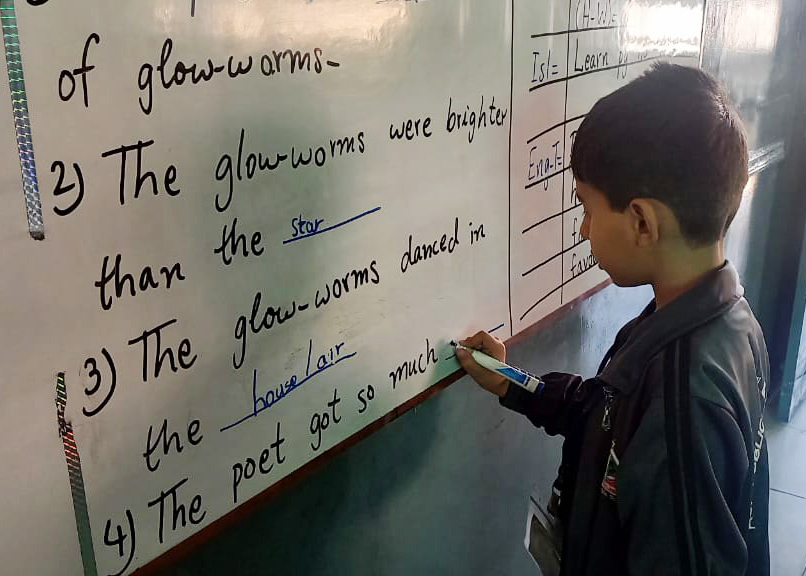 of glow-worms-
2) The glow-worms were brighter
than the star
3) The glow-worms danced in
the house/air
4) The poet got so much
(H-W)=
Isl= Learn
Eng-I=